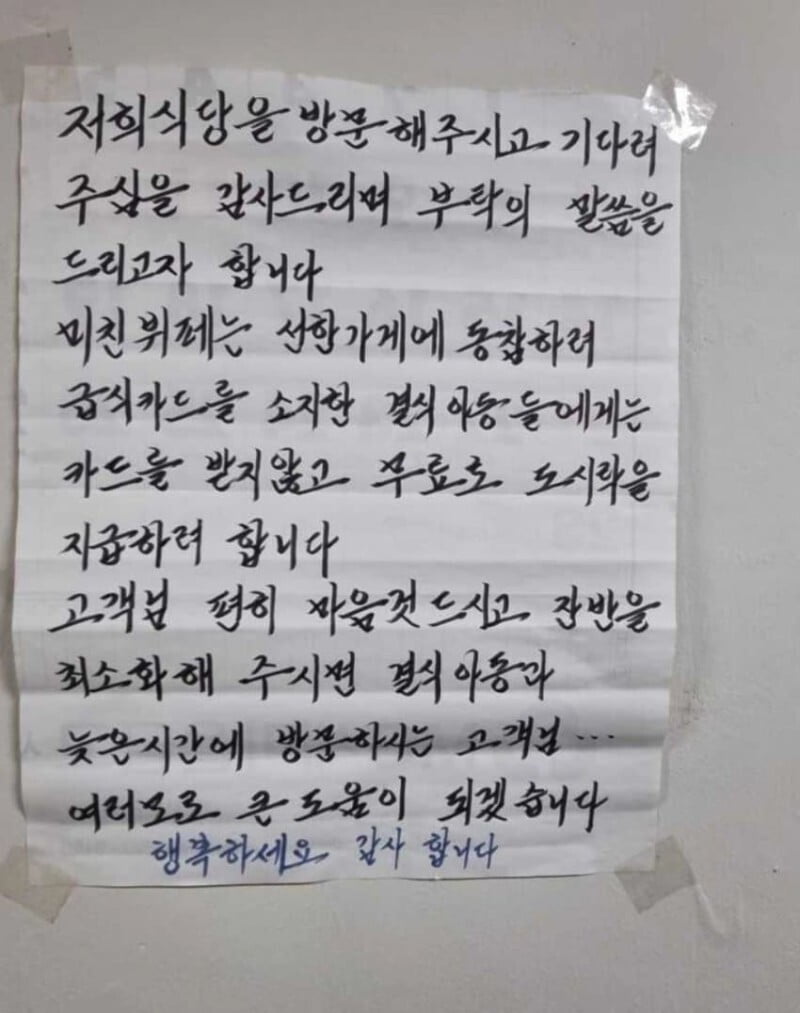 저희식당을 방문해주시고 기다려
주심을 감사드리며 부탁의 말씀을
드리고자 합니다
미친뷔페는 선한가게에 동참하려
급식카드를 소지한 결식아동들에게는
카드를 받지않고 무료로 도시락을
지급하려 합니다
고객님 편히 마음껏드시고 잔반을
최소화해 주시면 결식아동과
늦은시간에 방문하시는 고객님...
여러모로 큰도움이 되겠습니다
행복하세요 감사 합니다